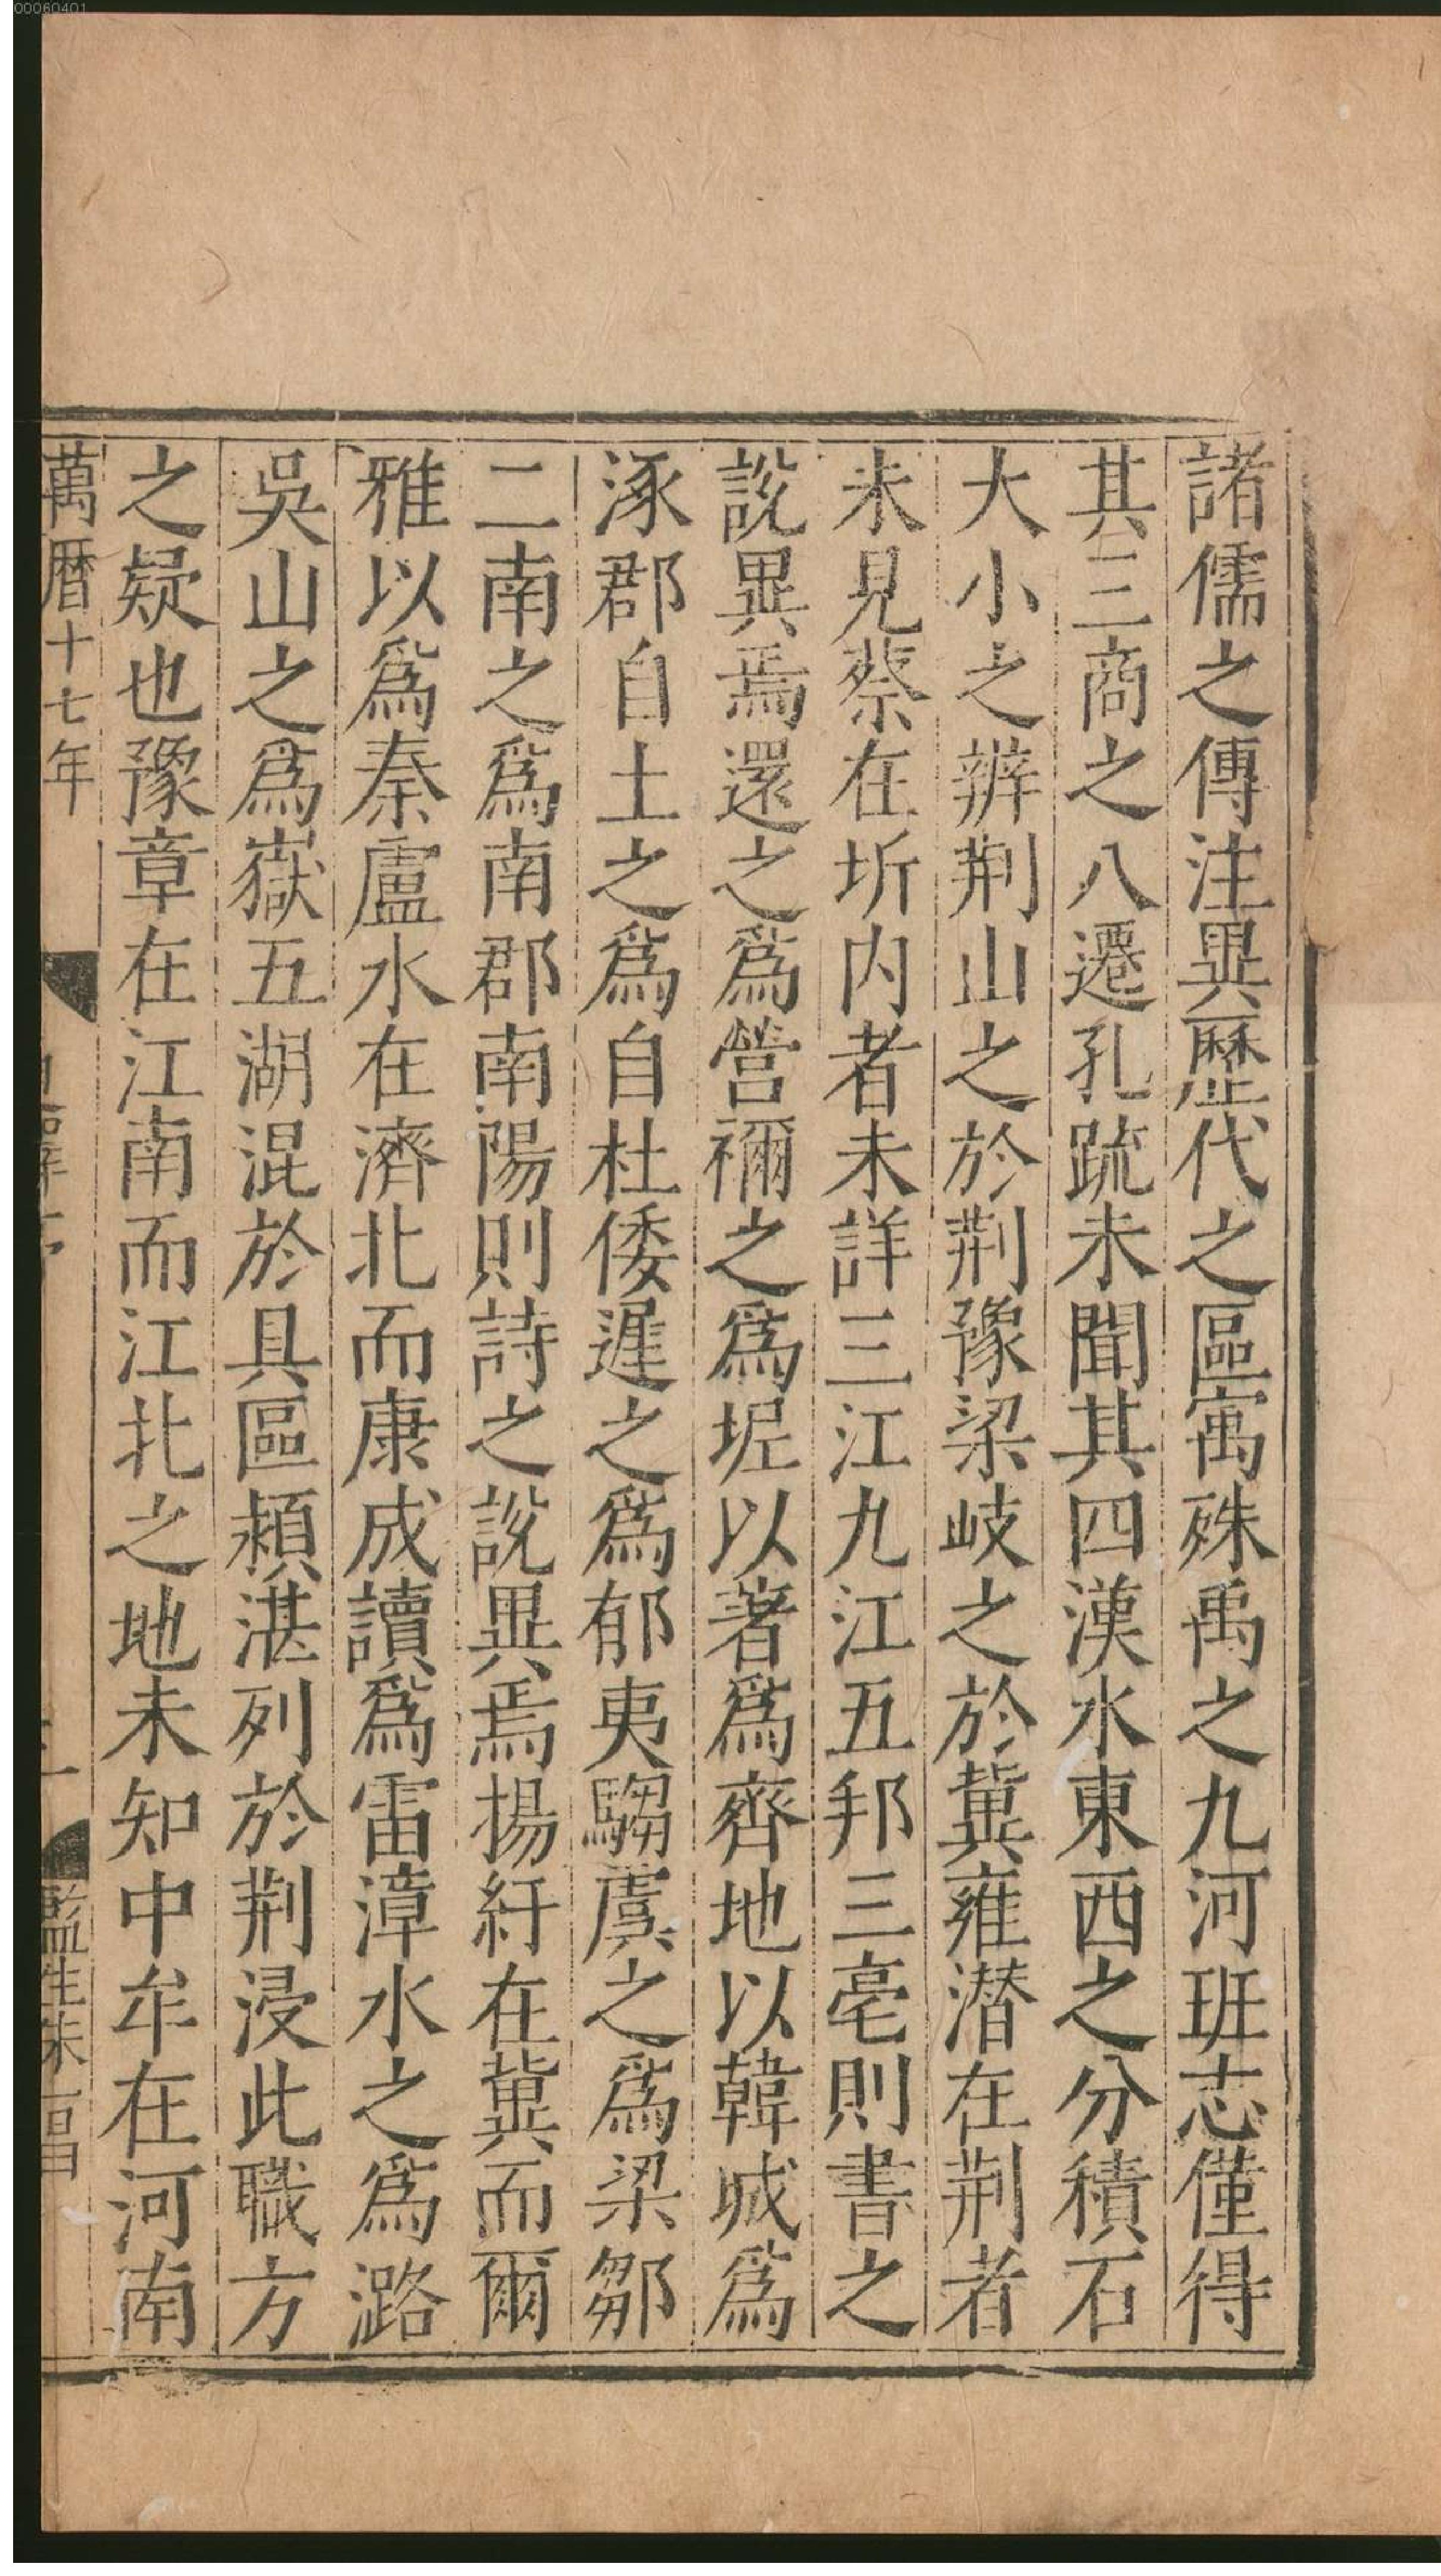 諸儒之傳注異歷代之區寓殊禹之九河班志僅得
其三商之八遷孔疏未聞其四漢水東西之分積石
大小之辨荆山之於荆豫梁岐之於冀雍潛在荆者
未見蔡在圻内者未詳三江九江五邦三亳則書之
說異焉還之爲營禰之爲坭以著爲齊地以韓城爲
涿郡自土之爲自杜倭遲之爲郁夷騶虞之爲梁鄒
二南之爲南郡南陽則詩之說異焉揚紆在冀而爾
雅以爲秦盧水在濟北而康成讀爲雷漳水之爲潞
吳山之爲嶽五湖混於具區潁湛列於荆浸此職方
之疑也豫章在江南而江北之地未知中牟在河南
萬曆十七年
監生朱一昌
00060401